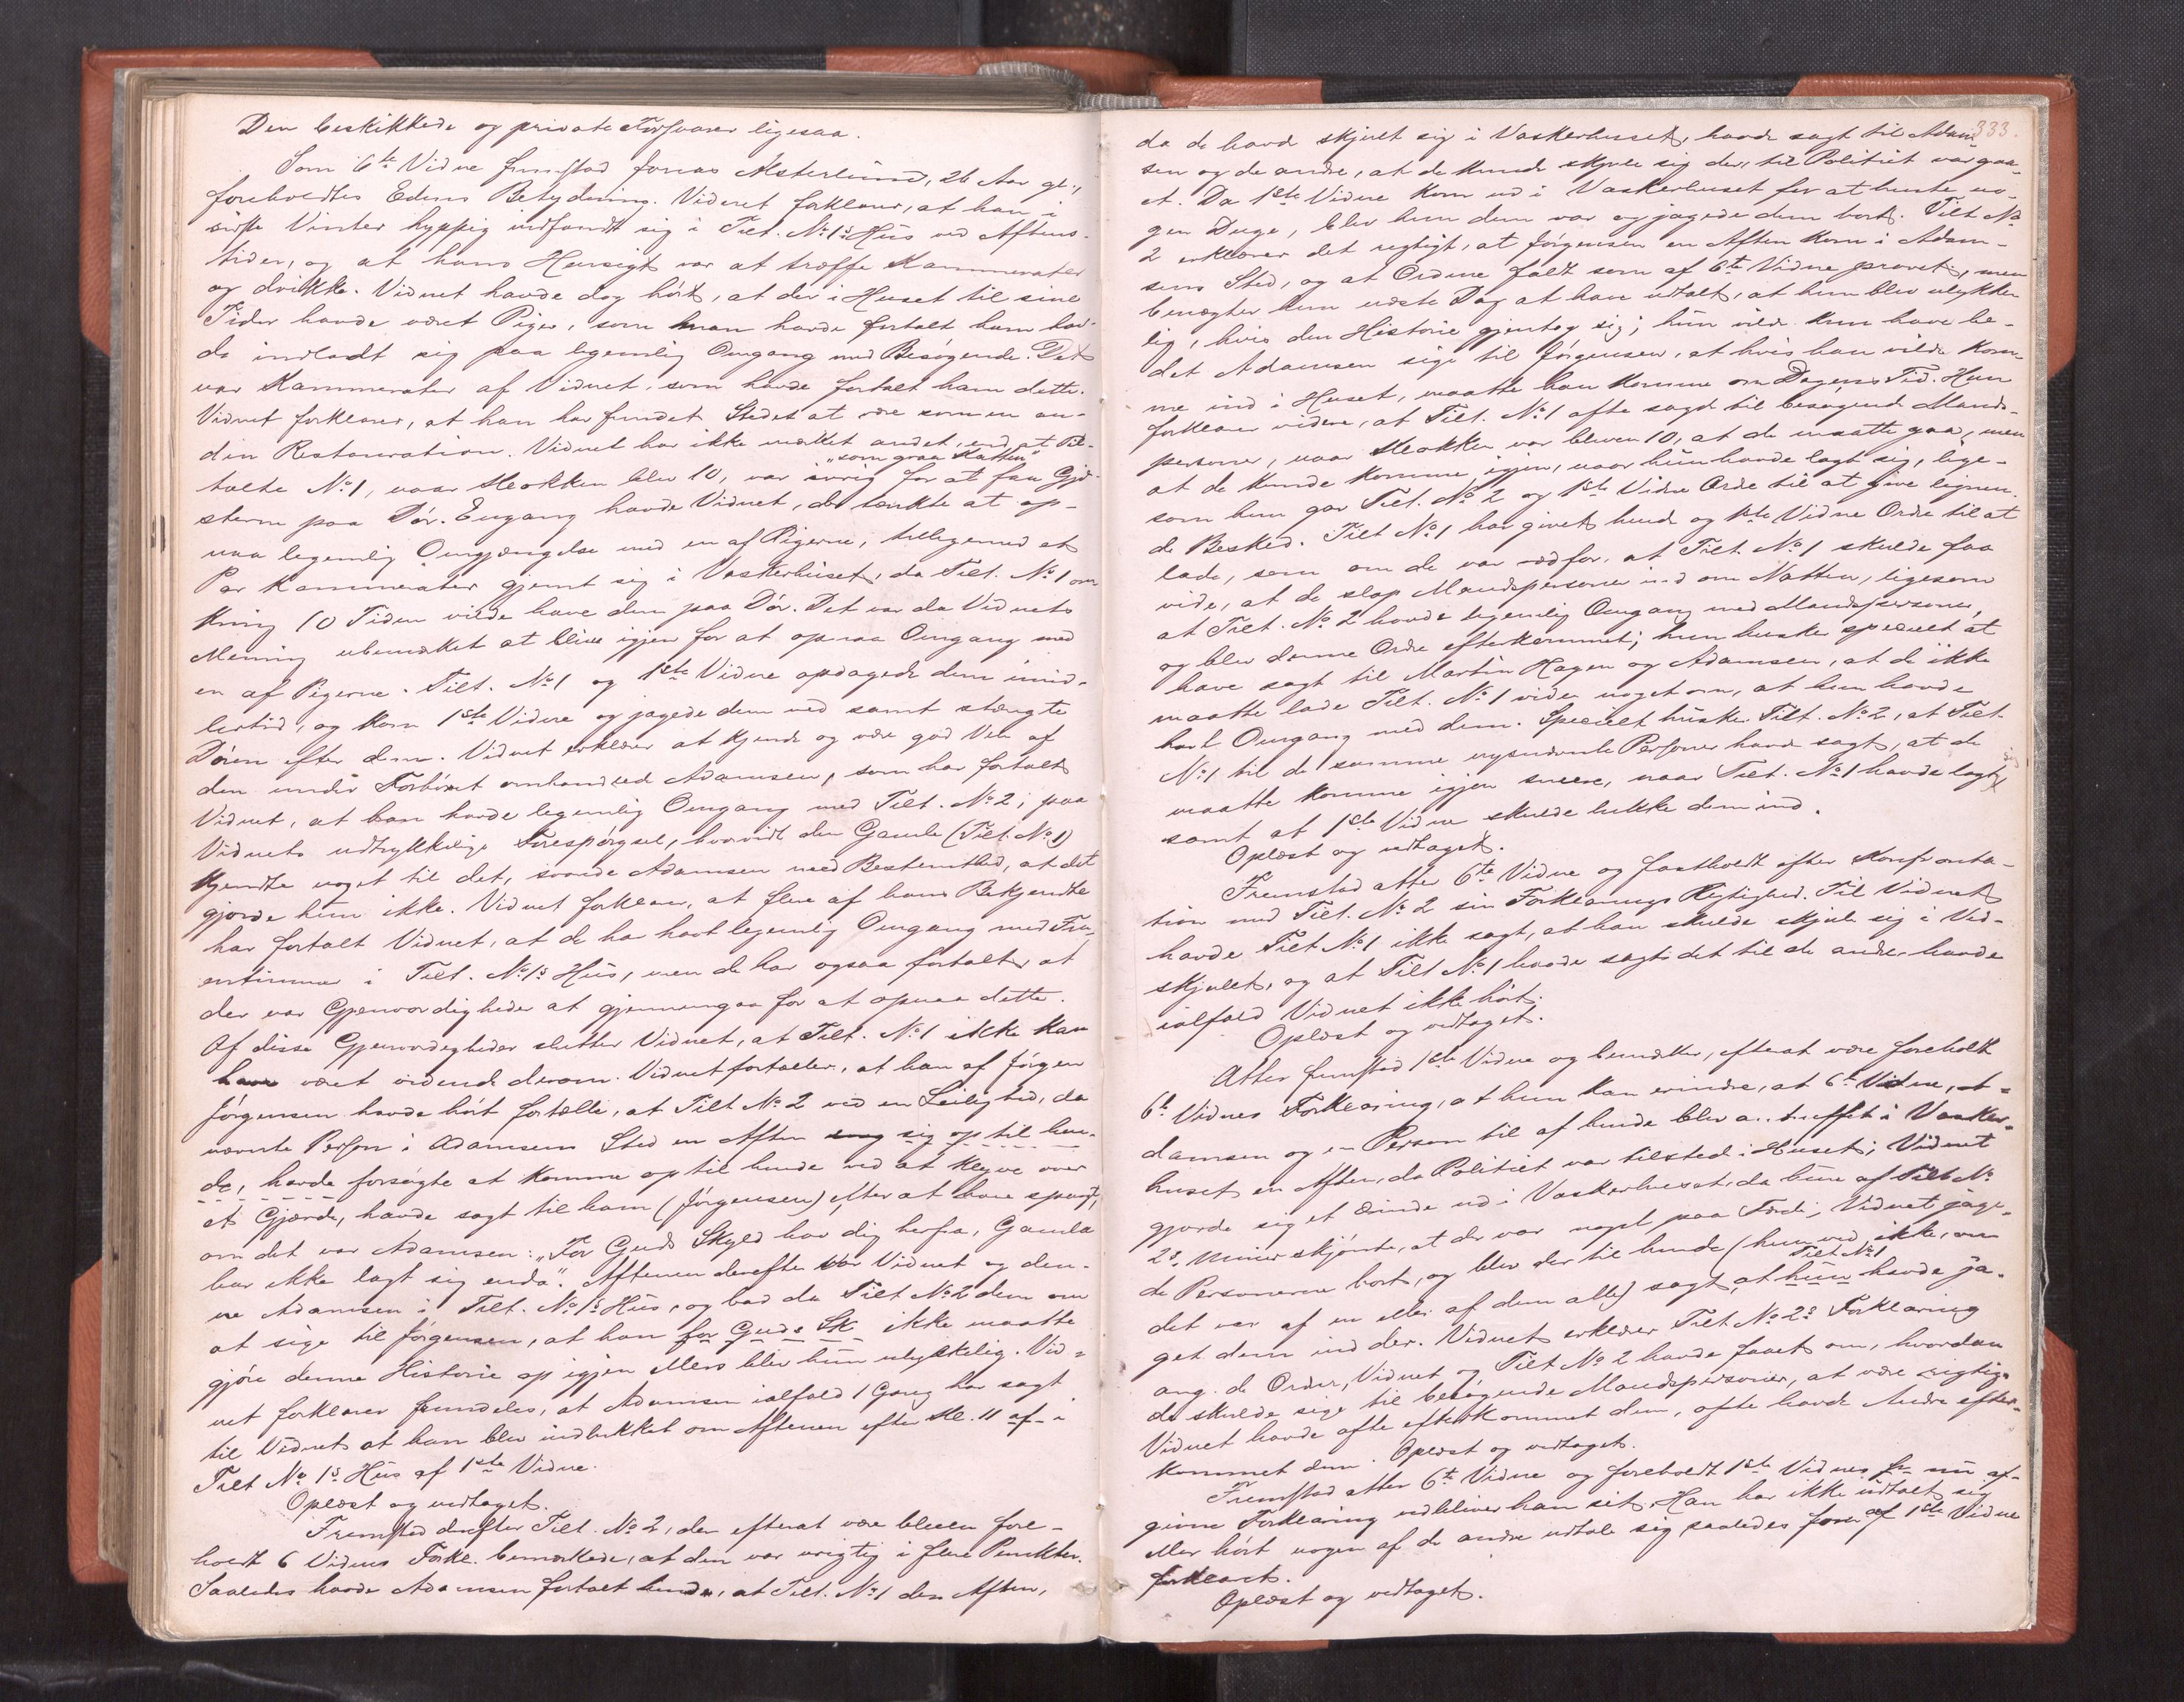 Den beskikkede og private Forsvarer ligesaa.
Som 6te Vidne fremstod Jonas Westerlund, 26 Aar gl.,
foreholdtes Edens Betydning. Vidnet forklarer, at han i
sidste Vinter hyppig indfandt sig i Tilt. No 1s Hus ved Aftens-
tider, og at hans Hensigt var at træffe Kammerater
og drikke. Vidnet havde dog hørt, at der i Huset til sine
Tider havde været Piger, som man havde fortalt ham hav-
de indladt sig paa legemlig Omgang med Besøgende. Det
var Kammerater af Vidnet, som havde fortalt ham dette.
Vidnet forklarer, at han har fundet Stedet at være som en an-
den Restauration. Vidnet har ikke mærket andet, end at Til-
"som graa Katten"
talte No 1, naar Klokken blev 10, var ivrig for at faa Gjæ-
sterne paa Dør. Engang havde Vidnet, der tænkte at op-
naa legemlig Omgjængelse med en af Pigerne, tilligemed et
Par Kammerater gjemt sig i Vaskerhuset, da Tilt. No 1 om-
kring 10 Tiden vilde have dem paa Dør. Det var da Vidnets
Mening ubemærket at blive igjen for at opnaa Omgang med
en af Pigerne. Tilt. No 1 og 1ste Vidne opdagede dem imid-
lertid, og kom 1ste Vidne og jagede dem ud samt stængte
Døren efter dem. Vidnet erklærer at kjende og være god Ven af
den under Forhøret omhandlede Adamsen, som har fortalt
Vidnet, at han havde legemlig Omgang med Tilt. No 2; paa
Vidnets udtrykkelige Forespørgsel, hvorvidt den Gamle (Tilt. No 1)
kjendte noget til det, svarede Adamsen med Bestemthed, at det
gjorde hun ikke. Vidnet forklarer, at flere af hans Bekjendte
har fortalt Vidnet, at de har havt legemlig Omgang med Fru-
entimmer i Tilt. No 1s Hus, men de har ogsaa fortalt, at
der var Gjenvordigheder at gjennemgaa for at opnaa dette.
Af disse Gjenvordigheder slutter Vidnet, at Tilt. No 1 ikke kan
have været vidende derom. Vidnet fortæller, at han af Jørgen
Jørgensen havde hørt fortælle, at Tilt No 2 ved en Leilighed, da
nævnte Person i Adamsens Sted en Aften sneg sig op til hen-
de, havde forsøgte at komme op til hende ved at klyve over
et Gjærde, havde sagt til ham (Jørgensen) efter at have spurgt,
om det var Adamsen: "For Guds Skyld hav dig herfra, Gamla
har ikke lagt sig enda". Aftenen derefter var Vidnet og den-
ne Adamsen i Tilt. No 1s Hus, og bad da Tilt No 2 dem om
at sige til Jørgensen, at han for Guds Sk ikke maatte
gjøre denne Historie op igjen ellers blev hun ulykkelig. Vid-
net forklarer fremdeles, at Adamsen ialfald 1 Gang har sagt
til Vidnet at han blev indlukket om Aftenen efter Kl. 11 af i
Tilt No 1s Hus af 1ste Vidne.
Oplæst og vedtaget.
Fremstod derefter Tilt. No 2, der efterat være bleven fore-
holdt 6 Vidnes Forkl. bemærkede, at den var urigtig i flere Punkter.
Saaledes havde Adamsen fortalt hende, at Tilt. No 1 den Aften,
333.
da de havde skjult sig i Vaskerhuset, havde sagt til Adam-
sen og de andre, at de kunde skjule sig der, til Politiet var gaa-
et. Da 1ste Vidne kom ud i Vaskerhuset for at hente no-
gen Duge, blev hun dem var og jagede dem bort. Tilt No
2 erklærer det rigtigt, at Jørgensen en Aften kom i Adam-
sens Sted, og at Ordene faldt som af 6te Vidne provet, men
benægter hun næste Dag at have udtalt, at hun blev ulykke-
lig, hvis den Historie gjentog sig; hun vilde kun have be-
det Adamsen sige til Jørgensen, at hvis han vilde kom-
me ind i Huset, maatte han komme om Dagens Tid. Hun
forklarer videre, at Tilt. No 1 ofte sagde til besøgende Mands-
personer, naar Klokken var bleven 10, at de maatte gaa, men
at de kunde komme igjen, naar hun havde lagt sig, lige-
som hun gav Tilt. No 2 og 1ste Vidne Ordre til at give lignen-
de Besked. Tilt No 1 har givet hende og 1ste Vidne Ordre til at
lade, som om de var ræd for, at Tilt. No 1 skulde faa
vide, at de slap Mandspersoner ind om Natten, ligesom
at Tilt. No 2 havde legemlig Omgang med Mandspersoner,
og blev denne Ordre efterkommet; hun husker specielt at
have sagt til Martin Hagen og Adamsen, at de ikke
maatte lade Tilt. No 1 vide noget om, at hun havde
havt Omgang med dem. Specielt husker Tilt. No 2, at Tilt
No 1 til de samme nysnævnte Personer havde sagt, at de
maatte komme igjen senere, naar Tilt. No 1 havde lagt sig
samt at 1ste Vidne skulde lukke dem ind.
Oplæst og vedtaget.
Fremstod atter 6te Vidne og fastholdt efter Konfronta-
tion med Tilt. No 2 sin Forklarings Rigtighed. Til Vidnet
havde Tilt No 1 ikke sagt, at han skulde skjule sig i Ved-
skjulet, og at Tilt No 1 havde sagt det til de andre havde
ialfald Vidnet ikke hørt.
Oplæst og vedtaget.
Atter fremstod 1ste Vidne og bemærker, efterat være foreholdt
6te Vidnes Forklaring, at hun kan erindre, at 6te Vidne, A-
damsen og en Person til af hende blev antruffet i Vasker-
huset en Aften, da Politiet var tilsted i Huset; Vidnet
gjorde sig et Ærinde ud i Vaskerhuset, da hun af Tilt No
2s Miner skjønte, at der var noget paa Færde; Vidnet jage-
de Personerne bort, og blev der til hende (hun ved ikke, om
Tilt No 1
det var af en eller af dem alle) sagt, at hun havde ja-
get dem ind der. Vidnet erklærer Tilt No 2s Forklaring
ang. de Ordrer, Vidnet og Tilt No 2 havde faaet om, hvordan
de skulde sige til besøgende Mandspersoner, at være rigtig.
Vidnet havde ofte efterkommet dem, ofte havde Andre efter-
kommet dem. Oplæst og vedtaget.
Fremstod atter 6te Vidne og foreholdt 1ste Vidnes nu af-
givne Forklaring vedbliver han sit. Han har ikke udtalt sig
eller hørt nogen af de andre udtale sig saaledes som af 1ste Vidne
forklaret.
Oplæst og vedtaget.